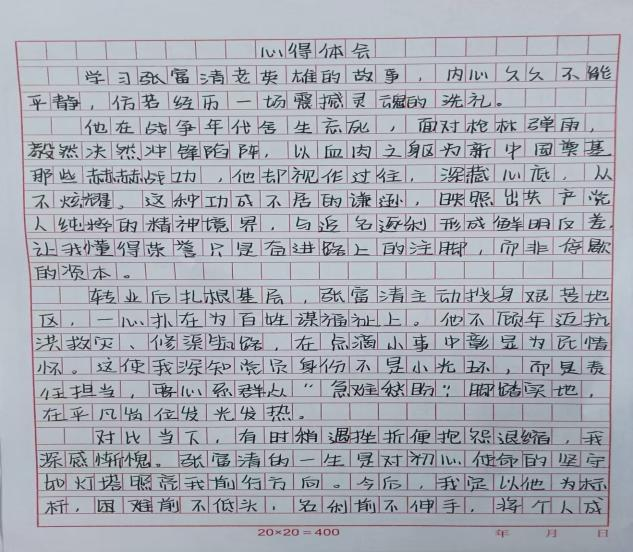 心得体会
学习张富清老英雄的故事，内心久久不能
平静，仿若经历一场震撼灵魂的洗礼。
他在战争年代舍生忘死，面对枪林弹雨，
毅然决然冲锋陷阵，以血肉之躯为新中国奠基
那些赫赫战功，他却视作过往，深藏心底，从
不炫耀。这种功成不居的谦逊，映照出共产党
人纯粹的精神境界，与追名逐利形成鲜明反差，
让我懂得荣誉只是奋进路上的注脚，而非停歇
的资本。
转业后扎根基层，张富清主动投身艰苦地
区，一心扑在为百姓谋福祉上。他不顾年迈抗
洪救灾、修渠筑路，在点滴小事中彰显为民情
怀。这使我深知党员身份不是小光环，而是责
任担当，要心系群众“急难愁盼”脚踏实地，
在平凡岗位发光发热。
对比当下，有时稍遇挫折便抱怨退缩，我
深感惭愧。张富清的一生是对初心使命的坚守
如灯塔照亮我前行方向。今后，我定以他为标
杆，困难前不低头，名利前不伸手，将个人成
20×20=400 年 月 日